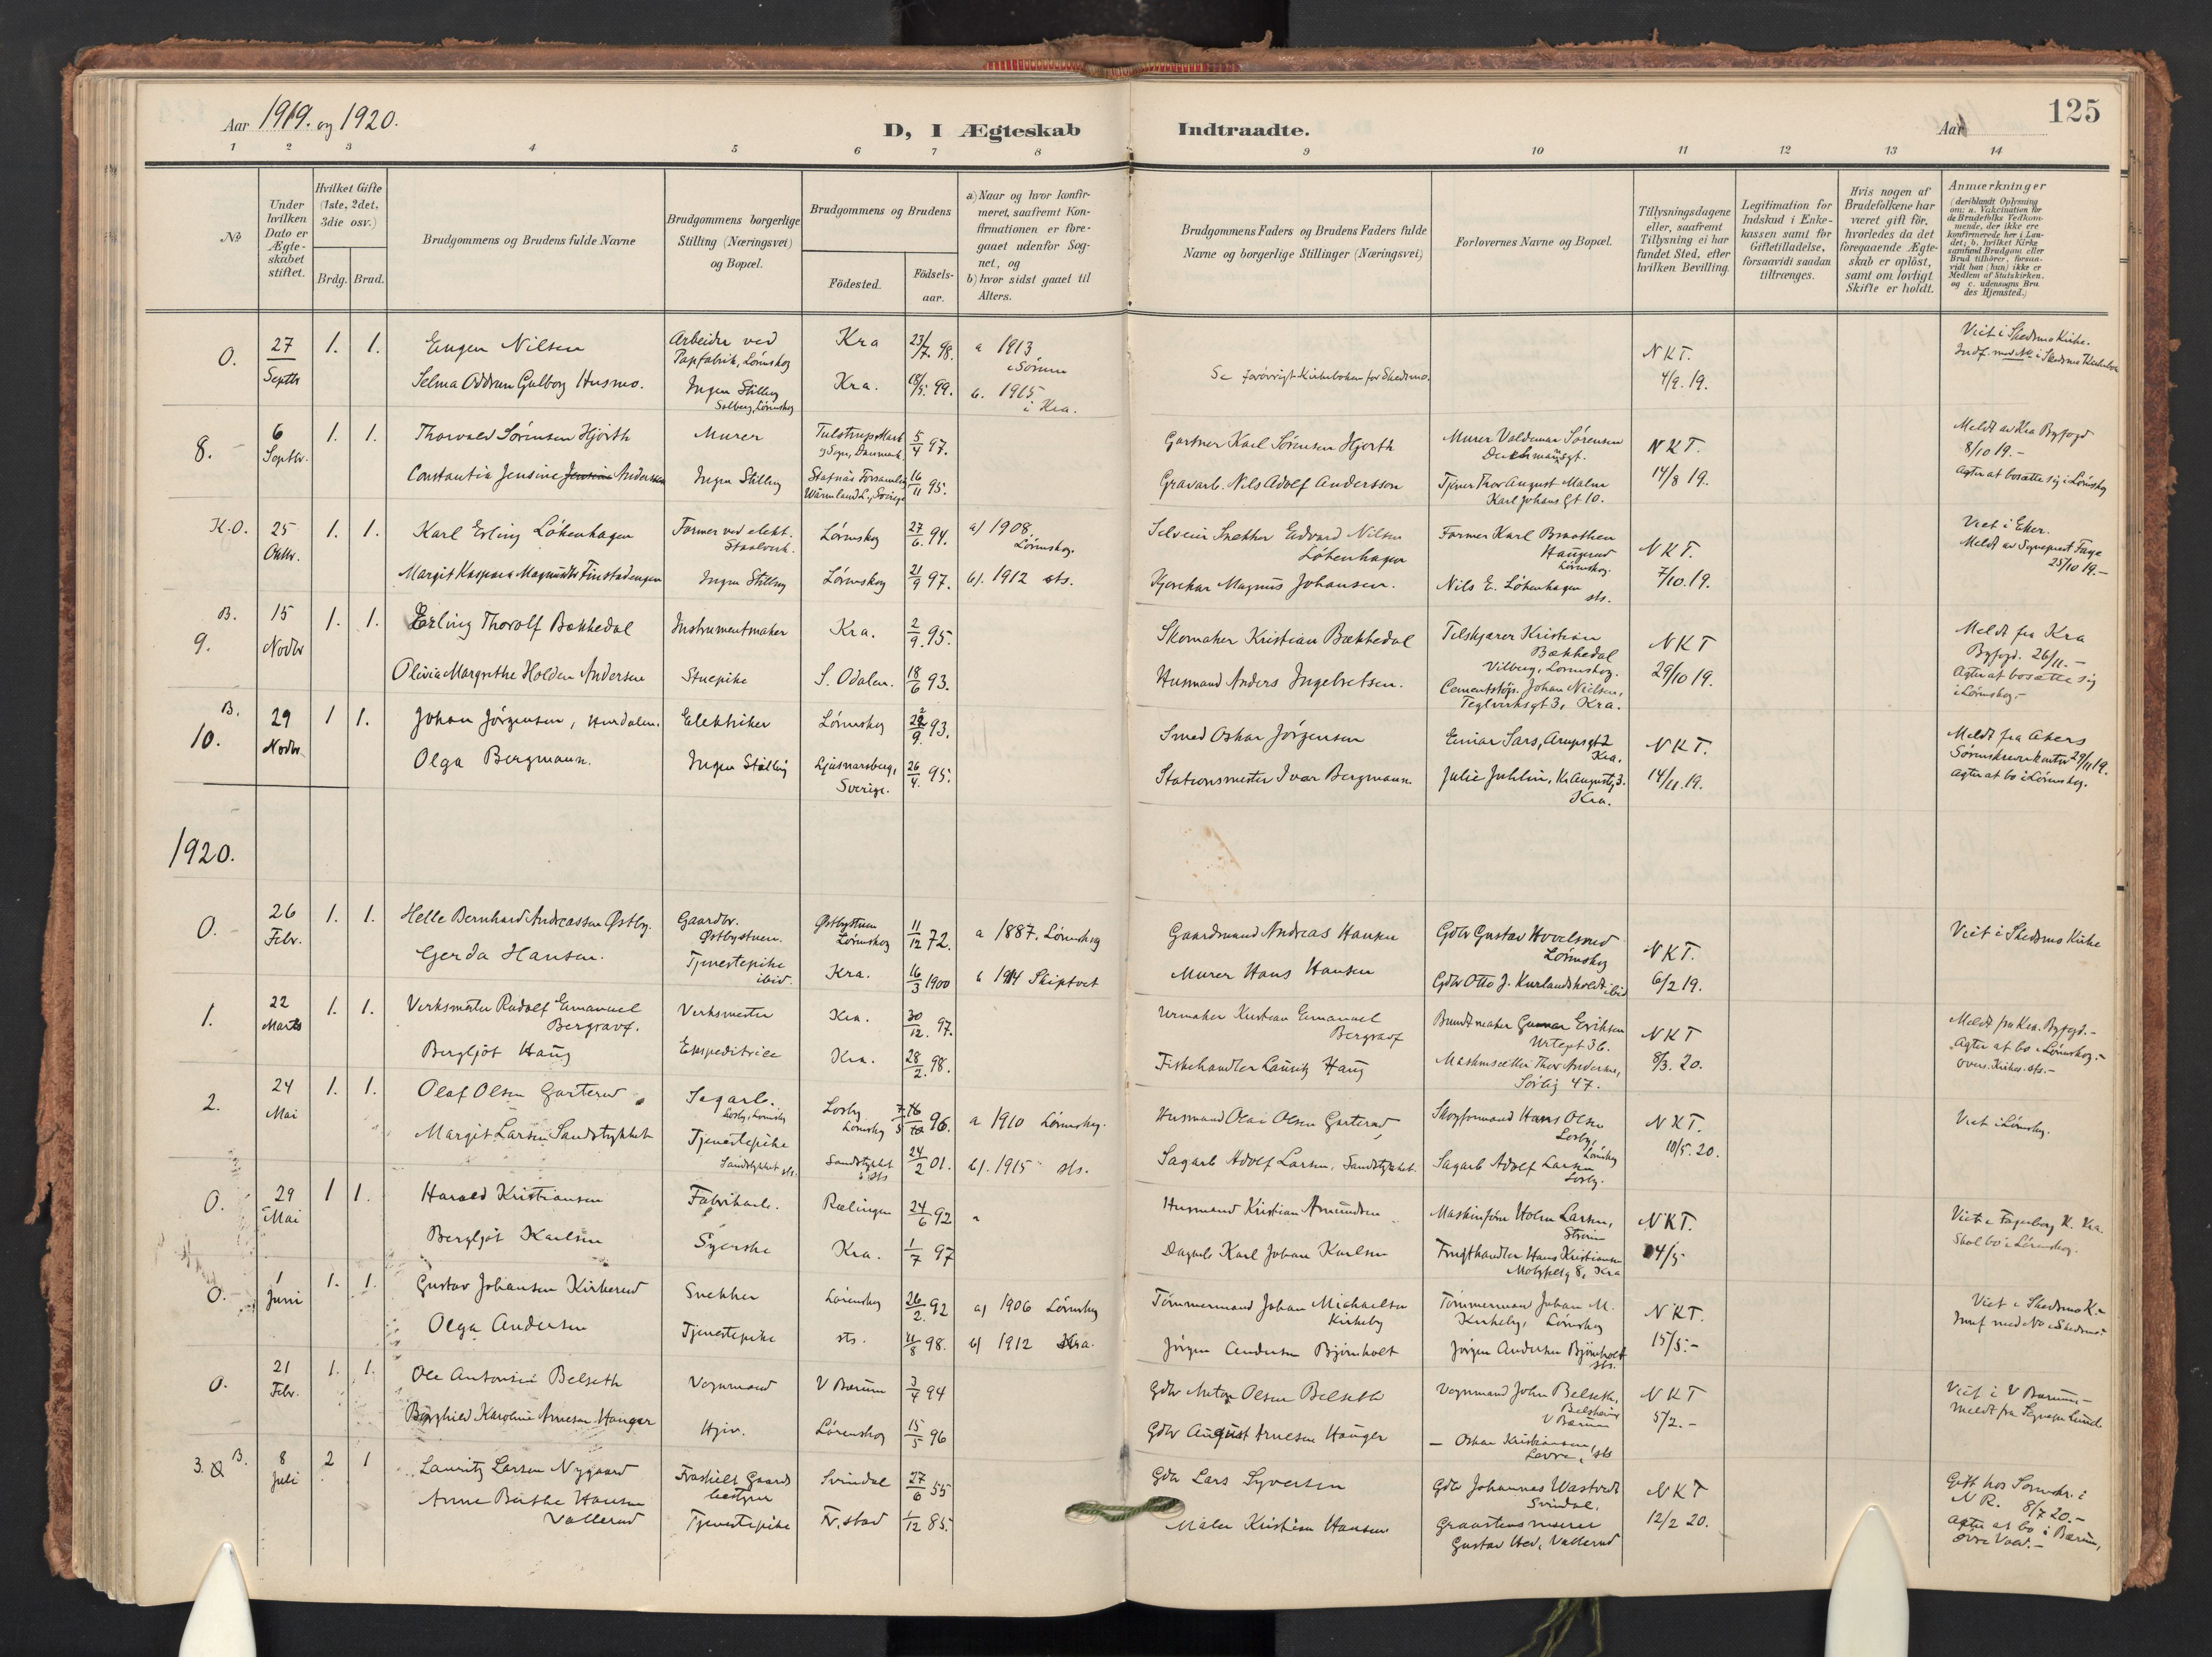 Aar 1919. og 1920.
D, I Ægteskab
Indtraadte.
Aar
125
1 2 3 4 5 6 7 8 9 10 11 12 13 14
No
Under hvilken Dato er Ægteskabet stiftet.
Hvilket Gifte (1ste, 2det, 3die osv.)
Brdg. Brud.
Brudgommens og Brudens fulde Navne
Brudgommens borgerlige Stilling (Næringsvei) og Bopæl.
Brudgommens og Brudens
Födested. Födselsaar.
a) Naar og hvor konfirmeret, saafremt Konfirmationen er foregaaet udenfor Sognet, og
b) hvor sidst gaaet til Alters.
Brudgommens Faders og Brudens Faders fulde Navne og borgerlige Stillinger (Næringsvei)
Forlovernes Navne og Bopæl.
Tillysningsdagene eller, saafremt Tillysning ei har fundet Sted, efter hvilken Bevilling.
Legitimation for Indskud i Enkekassen samt for Giftetilladelse, forsaavidt saadan tiltrænges.
Hvis nogen af Brudefolkene har været gift för, hvorledes da det foregaaende Ægteskab er oplöst, samt om lovligt Skifte er holdt.
Anmærkninger
(deriblandt Oplysning om: a. Vakcination for de Brudefolks Vedkommende, der ikke ere konfirmerede her i Landet; b. hvilket Kirkesamfund Brudgom eller Brud tilhörer, forsaavidt han (hun) ikke er Medlem af Statskirken. og c. udensogns Brudes Hjemsted.)
0. 27 Septb 1. 1. Eugen Nilsen Arbeider ved Papfabrik, Lörenskog Kra 23/7. 98. a 1913 i Sörum
Selma Oddrun Gulborg Husmo. Ingen Stilling Solberg, Lörenskog Kra. 18/5. 99. b. 1915 i Kra.
Se forövrigt Kirkeboken for Skedsmo.
NKT. 4/9. 19.
Viet i Skedsmo Kirke.
Indf. med No i Skedsmo Kirkebok
8. 6 Septbr. 1. 1. Thorvald Sörensen Hjorth Murer Tulstrup Mark og Sogn, Danmark 5/4 97.
Constantia Jensine Andersen Ingen Stilling Stafnäs Församling Wärmland L., Sverige 16/11 95.
Gartner Karl Sörensen Hjorth
Gravarb. Nils Adolf Andersson
Murer Valdemar Sörensen
Tjener Thor August Malm Karl Johans Gt 10.
NKT. 14/8 19.
Meldt av Kra Byfogd 8/10 19.-
Agter at bosætte sig i Lörenskog
K.O. 25 Oktbr. 1. 1. Karl Erling Lökenhagen Former ved elekt. Staalverk. Lörenskog 27/6. 94. a) 1908. Lörenskog.
Margit Kaspara Magnusdtr Finstadengen Ingen Stilling Lörenskog 21/9 97. b). 1912 sts.
Selveier Snekker Edvard Nilsen Lökenhagen
Kjörekar Magnus Johansen.
Former Karl Braathen Haugerud Lörenskog.
Nils E. Lökenhagen sts.
NKT. 7/10. 19.
Viet i Eker.
Meldt av Sogneprest Faye 25/10 19.-
B. 9. 15 Novbr 1. 1. Erling Thorolf Bækkedal Instrumentmaker Kra. 2/9. 95.
Olivia Margrethe Holden Andersen Stuepike S. Odalen. 18/6 93.
Skomaker Kristian Bækkedal
Husmand Anders Ingebretsen.
Tilskjærer Kristian Bækkedal Vilberg, Lörenskog.
Cementstöp. Johan Nielsen, Teglverksgt 3, Kra.
NKT 29/10 19.
Meldt fra Kra Byfogd. 26/11.-
Agter at bosætte sig i Lörenskog.-
B. 10. 29 Novbr. 1 1. Johan Jörgensen, Hurdalen. Elektriker Lörenskog 22/9. 93.
Olga Bergmann. Ingen Stilling Ljusnarsberg, Sverige. 26/4. 95.
Smed Oskar Jörgensen
Stationsmester Ivar Bergmann
Einar Sars, Arupsgt 2 Kra.
Julie Juhlin, Kr. Augustsg. 3. Kra.
NKT. 14/11. 19.
Meldt fra Akers Sorenskriverkontor 29/11 19.
Agter at bo i Lörenskog.
1920.
0. 26 Febr. 1. 1. Helle Bernhard Andreassen Østby. Gaardbr. Østbystuen. Østbystuen Lörenskog 11/12 72. a 1887. Lörenskog
Gerda Hansen. Tjenestepike ibid. Kra. 16/3 1900 b 1914 Skiptvet
Gaardmand Andreas Hansen
Murer Hans Hansen
Gdbr Gustav Hovelsrud Lörenskog
Gdbr Otto J. Kurlandsholdt ibid
NKT. 6/2 19.
Viet i Skedsmo Kirke
1. 22 Marts 1. 1. Verksmester Rudolf Emanuel Bergravf. Verksmester Kra. 30/12. 97.
Bergljot Haug Ekspeditrice Kra. 28/2. 98.
Urmaker Kristian Emanuel Bergravf
Fiskehandler Lauritz Haug
Buntmaker Gunnar Eriksen Urtegt 36.
Maskinsætter Thor Andersen, Sorlig 47.
NKT 8/3. 20.
Meldt fra Kra. Byfogd.-
Agter at bo i Lörenskog.-
2. 24 Mai 1. 1. Olaf Olsen Garterud Sagarb. Losby, Lörenskog Losby Lörenskog 96. a 1910 Lörenskog.
Margit Larsen Sandstykket Tjenestepike Sandstykket sts. Sandstykket sts 24/2 01. b). 1915 sts.
Husmand Olai Olsen Garterud
Sagarb Adolf Larsen, Sandstykket.
Skogformand Hans Olsen Losby, Lörenskog
Sagarb Adolf Larsen Losby.
NKT. 10/5. 20.
Viet i Lörenskog.
0. 29 Mai 1 1. Harald Kristiansen Fabrikarb. Rælingen 24/6 92 a
Bergljot Karlsen Syerske Kra. 1/7 97
Husmand Kristian Amundsen
Dagarb Karl Johan Karlsen
Maskinform Holm Larsen, Strøm
Frugthandler Hans Kristiansen Kra
NKT. 14/5
Viet i Fagerborg K. Kra.
Skal bo i Lörenskog.
0. 1 Juni 1. 1. Gustav Johansen Kirkerud Snekker Lörenskog 26/2. 92 a) 1906 Lörenskog
Olga Andersen Tjenestepike sts. 11/8 98. b) 1912 Kra.
Tömmermand Johan Michaelsen Kirkeby
Jörgen Andersen Björnholt
Tömmermand Johan M. Kirkeby, Lörenskog
Jörgen Andersen Björnholt sts.
NKT. 15/5.-
Viet i Skedsmo K.
Innf med No i Skedsmo
0. 21 Febr. 1. 1. Ole Antonsen Belseth Vognmand V Bærum 3/4 94
Borghild Karoline Arnesen Hauger Hjem. Lörenskog 15/5 96
Gdbr Anton Olsen Belseth
Gdbr August Arnesen Hauger
Vognmand John Belseth, V Bærum
– Oskar Kristiansen, sts
NKT 5/2.-
Viet i V Bærum.-
Meldt fra Sognepr Lund.
3. B. 8 Juli 2 1 Lauritz Larsen Nygaard Fraskilt Gaardbestyrer Svindal 27/6 55
Anne Berthe Hansen Vallerud Tjenestepike Fr.stad 1/12 85.
Gdbr Lars Syversen
Maler Kristian Hansen
Gdbr Johannes Wastvedt Svindal.
Graastensmurer Gustav Hed, Vallerud
NKT 12/2 20.
Gift hos Sorenskr. i N R. 8/7 20.-
Agter at bo i Bærum, øvre Vold.-